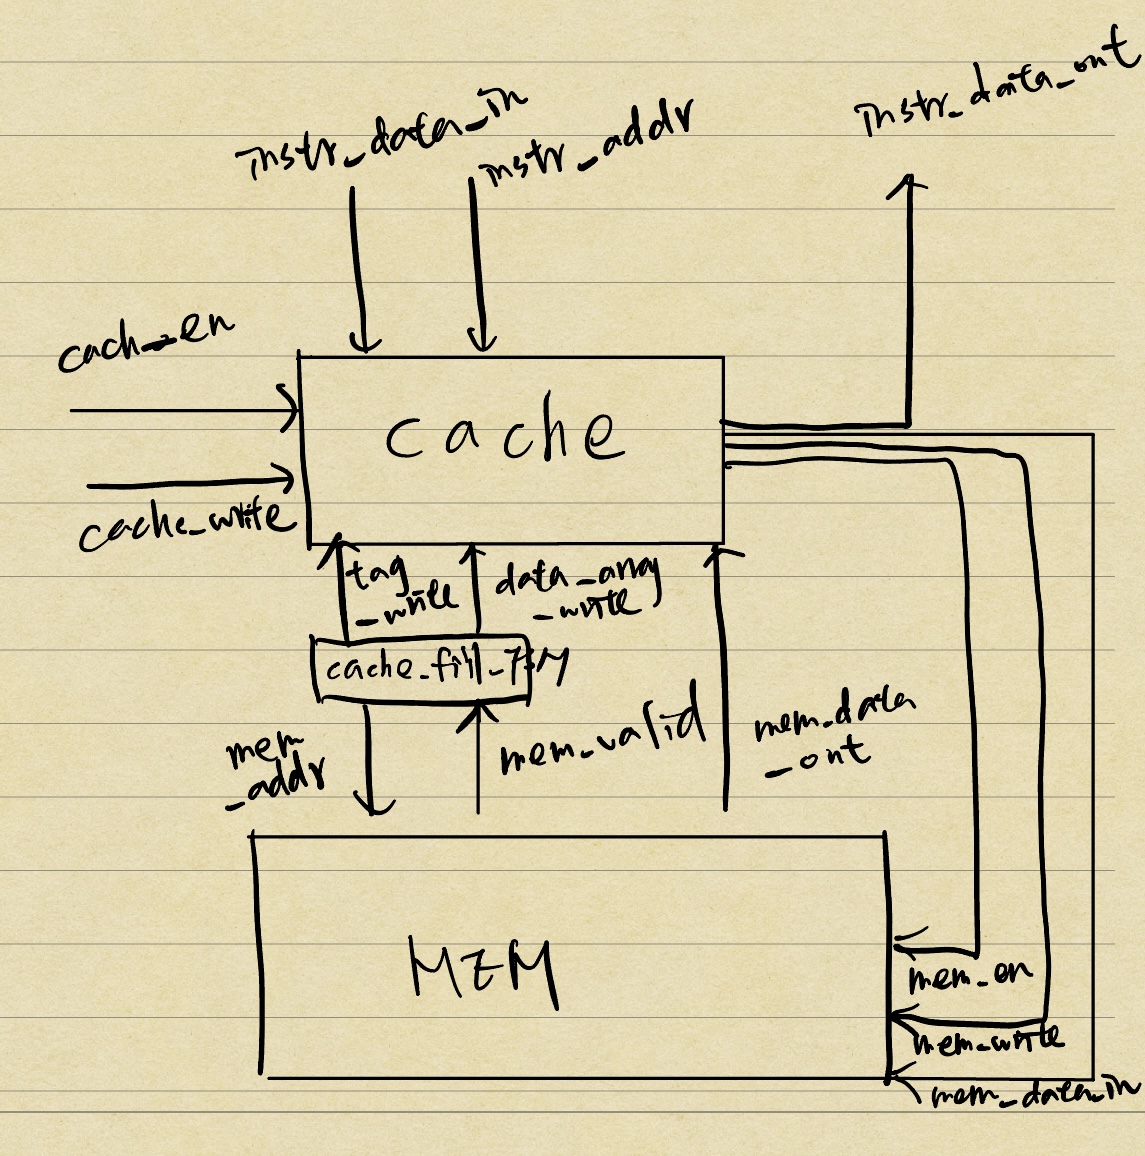 instr_data_out
instr_data_in
instr_addr
cach_en
cache
cache_write
tag
_write
data_array
_write
cache_fill_FSM
mem
_addr
mem_valid
mem_data
_out
MEM
mem_en
mem_write
mem_data_in